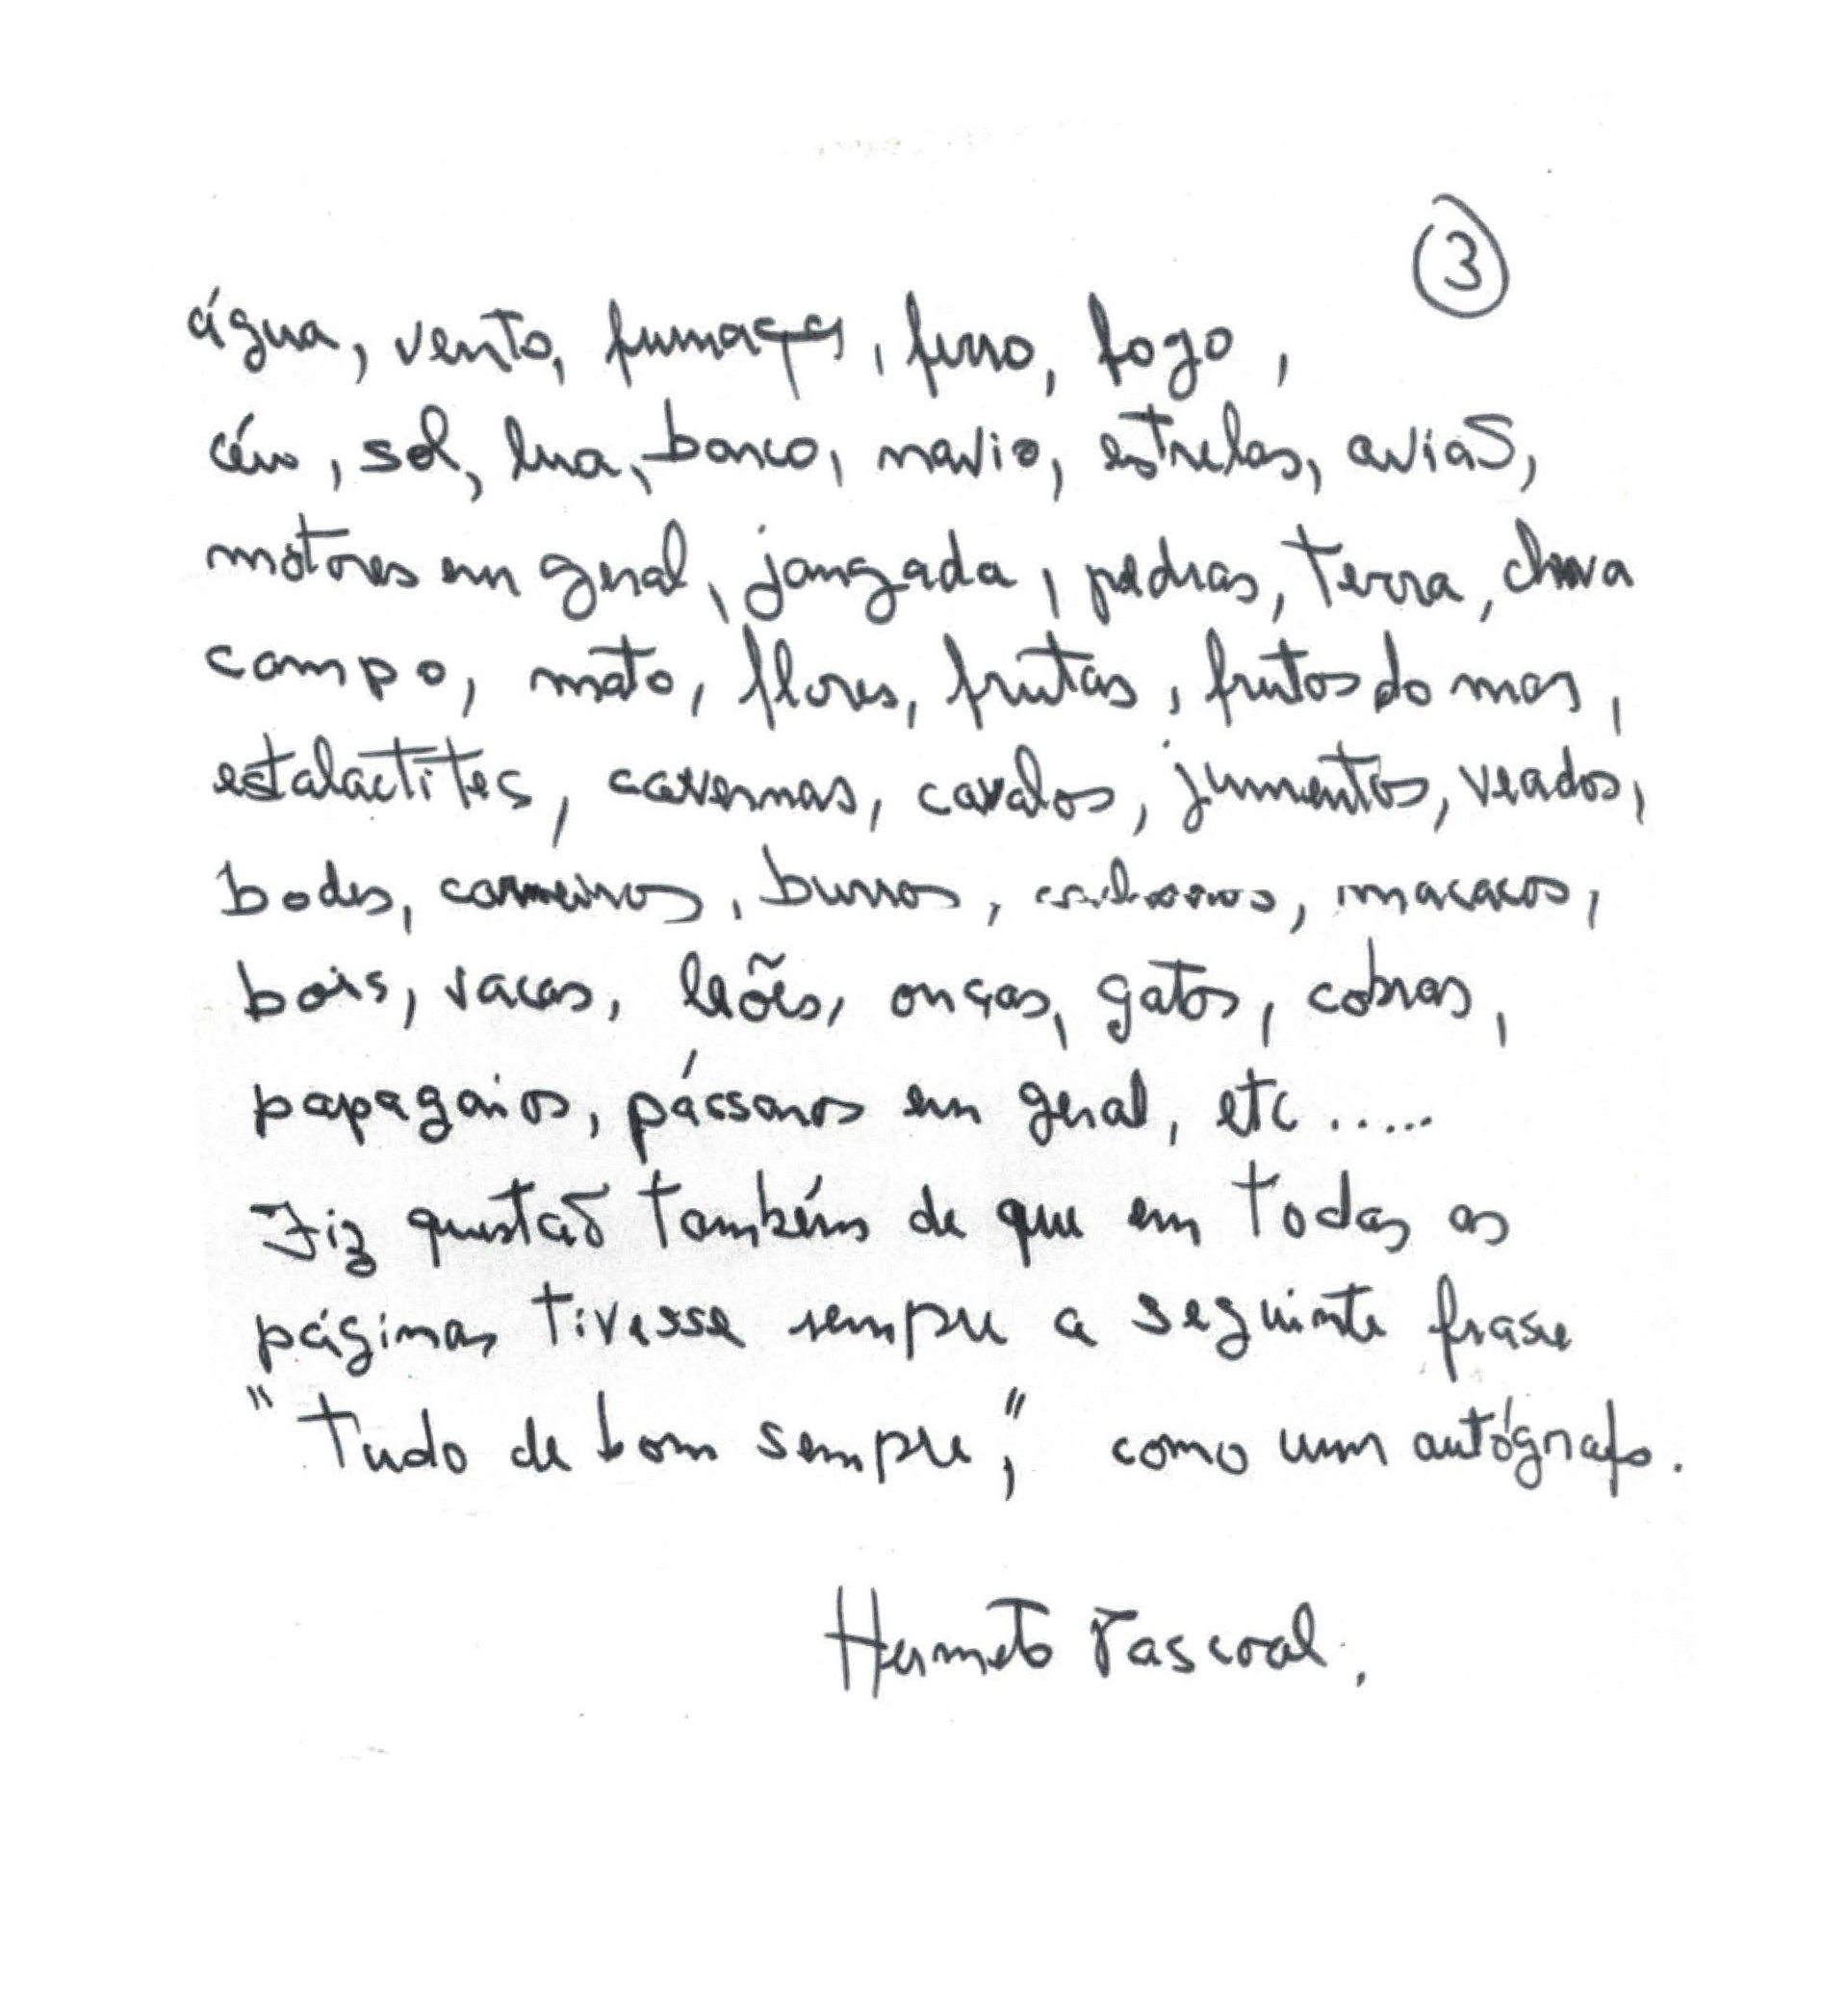 3
água, vento, fumaça, ferro, fogo,
céu, sol, lua, barco, navio, estrelas, avião,
motores em geral, jangada, pedras, terra, chuva
campo, mato, flores, frutas, frutos do mar,
estalactites, cavernas, cavalos, jumentos, veados,
bodes, carneiros, burros, cachorros, macacos,
bois, vacas, leões, onças, gatos, cobras,
papagaios, pássaros em geral, etc.....
Fiz questão também de que em todas as
páginas tivesse sempre a seguinte frase
"Tudo de bom sempre," como um autógrafo.
Hermeto Pascoal.